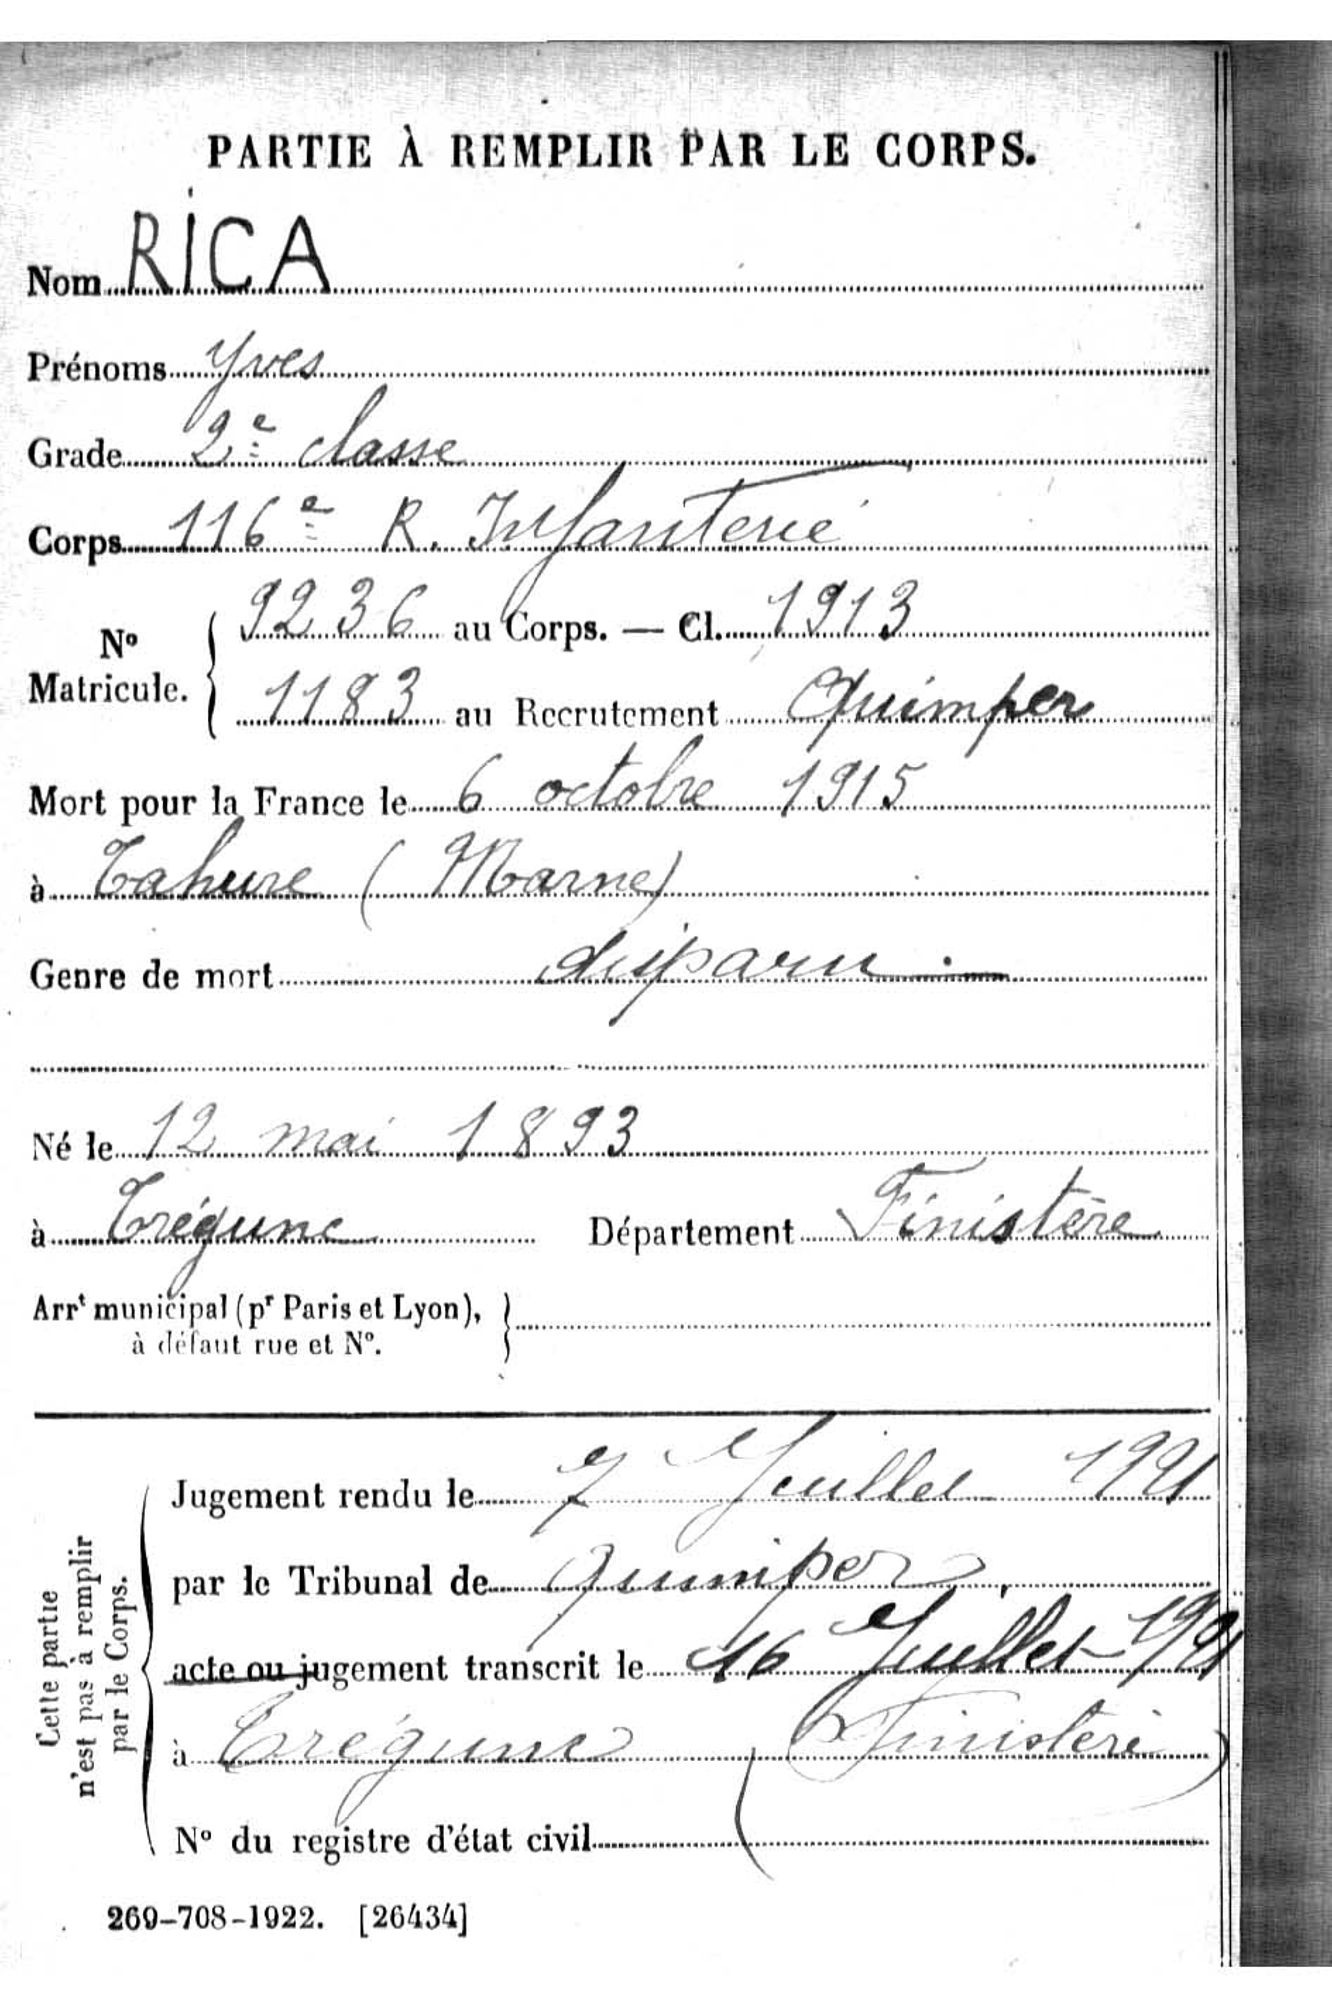 PARTIE À REMPLIR PAR LE CORPS.
Nom RICA
Prénoms Yves
Grade 2e classe
Corps 116e R. Infanterie
No Matricule. { 9236 au Corps. — Cl. 1913
1183 au Recrutement Quimper
Mort pour la France le 6 octobre 1915
à Tahure (Marne)
Genre de mort disparu
Né le 12 mai 1893
à Trégunc Département Finistère
Arrt municipal (pr Paris et Lyon), }
à défaut rue et No.
Cette partie
n'est pas à remplir
par le Corps.
Jugement rendu le 7 Juillet 1921
par le Tribunal de Quimper
acte ou jugement transcrit le 16 Juillet 1921
à Trégunc (Finistère)
No du registre d'état civil
269-708-1922. [26434]